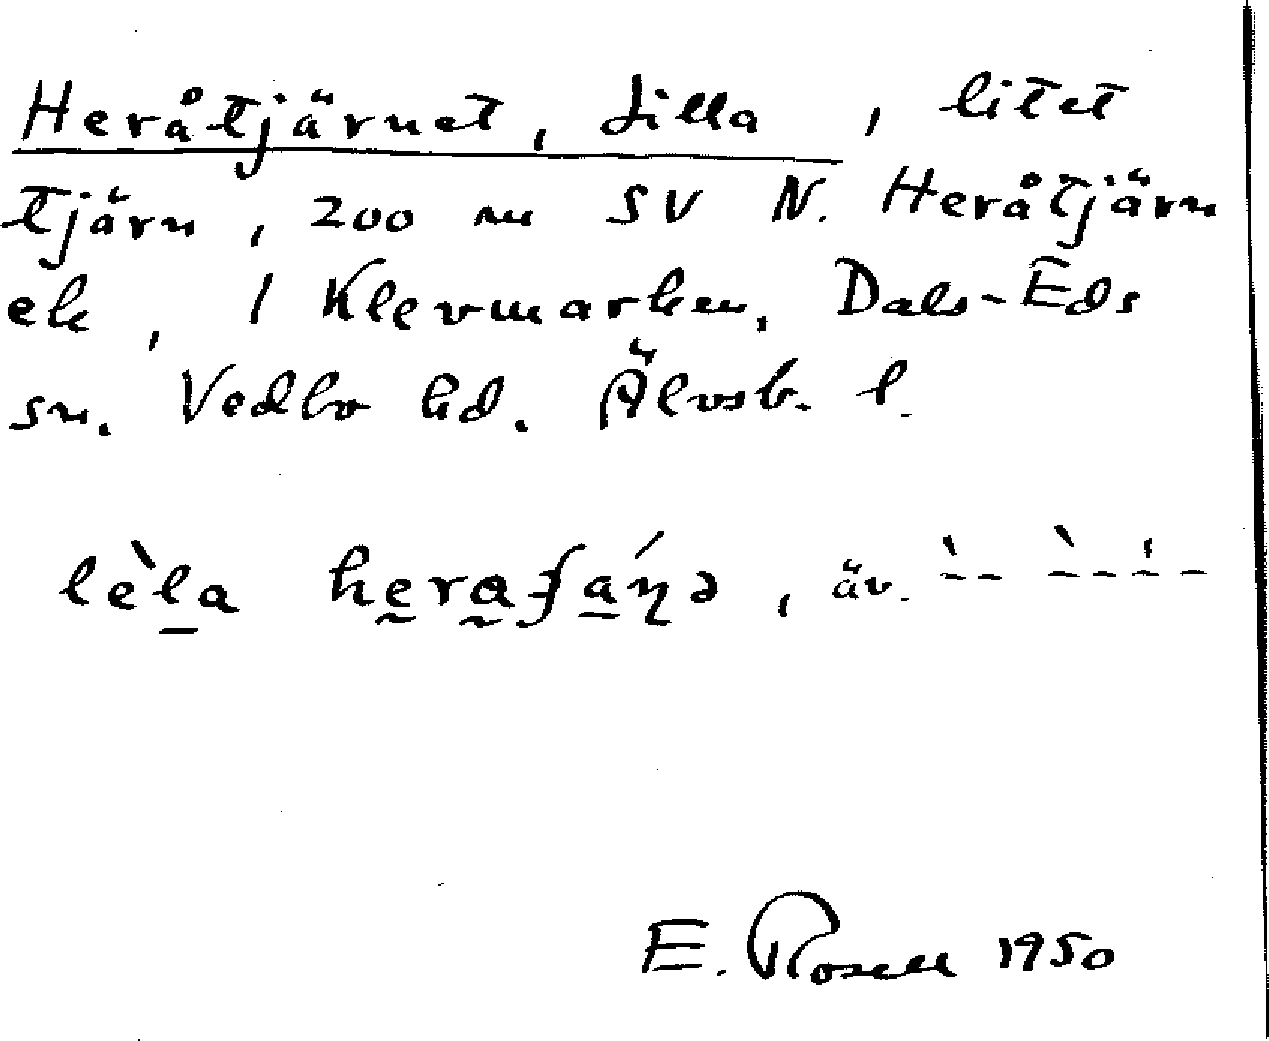 Heråtjärnet, Lilla, litet
tjärn, 200 m SV N. Heråtjärn
ek, 1 Klevmarken, Dals-Eds
sn. Vedbo hd. Älvsb. l.
lèla
, äv.
E. Rosell 1950